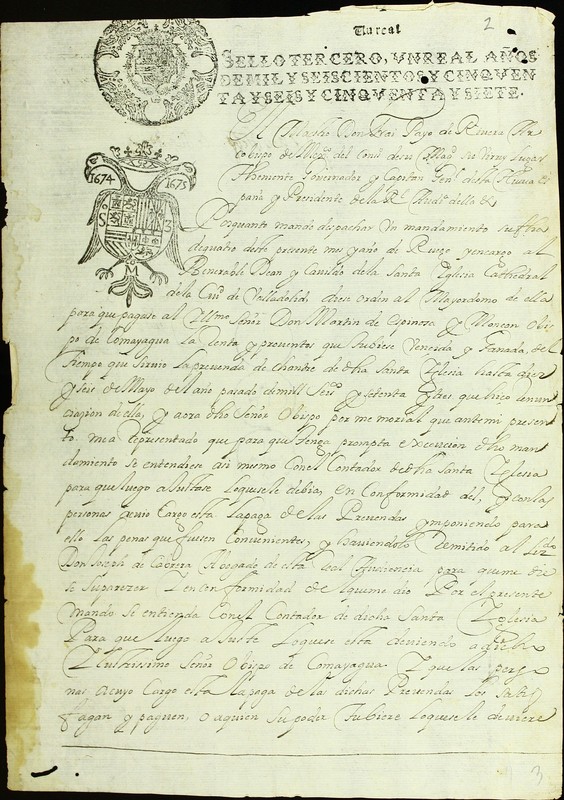 Un real
2
SELLO TERCERO, UN REAL AÑOS
DE MIL Y SEISCIENTOS Y CINQVEN
TA Y SEIS Y CINQVENTA Y SIETE.
1674 1675
El Maestro Don Frai Payo de Rivera Ar
cobispo de Mexco del Conso desu Magd su Virrey Lugar
Theniente Governador y Capitan Genl desta Nueva es
paña y Presidente de la Rl Audia della &
Porquanto mande despachar Un mandamiento su fha
dequatro deste presente mes y año de Ruego yencargo al
Venerable Dean y Cavildo de la Santa Yglesia Cathedral
de la Ciud de Valladolid, diese orden al Mayordomo de ella
para que pagase al Illmo Señor Don Martin de Espinosa y Monzon Obis
po de Comayagua La Renta y proventos que tubiese Vencida y Ganada, del
tiempo que sirvio la prevenda de chantre de dha Santa Yglesia hasta diez
y seis de Mayo del año pasado de mill Seiso y setenta y tres que hiço renun
ciazion de ella, y aora dho Señor Obispo por memorial que antemi presen
to mea Representado que para que tenga prompta execucion dho man
damiento se entendiese asi mismo Con el Contador de dha Santa Yglesia
para que luego ajustase loquese le debia, en Conformidad del, y con las
personas acuio Cargo esta la paga de las Prevendas ymponiendo para
ello las penas que fuesen Convenientes, y haviendolo Remitido al Licdo
Don Joseph de Cabrera Abogado de esta Real Audiencia para que me die
se Suparezer Y en conformidad de lo que me dio Por el presente
mando se entienda Con el Contador de dicha Santa Yglesia
Para que luego ajuste loquese esta deviendo a dicho
Illustrissimo Señor Obispo de Comayagua Y que las perso
nas acuyo Cargo esta la paga de las dichas Prevendas los satis
fagan y paguen, o aquien su poder tubiere loquese le deviere
3